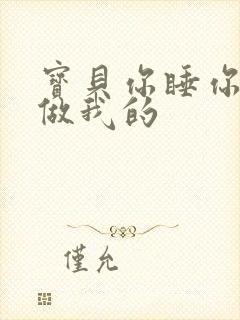 寶貝你睡你
做我的
僅允